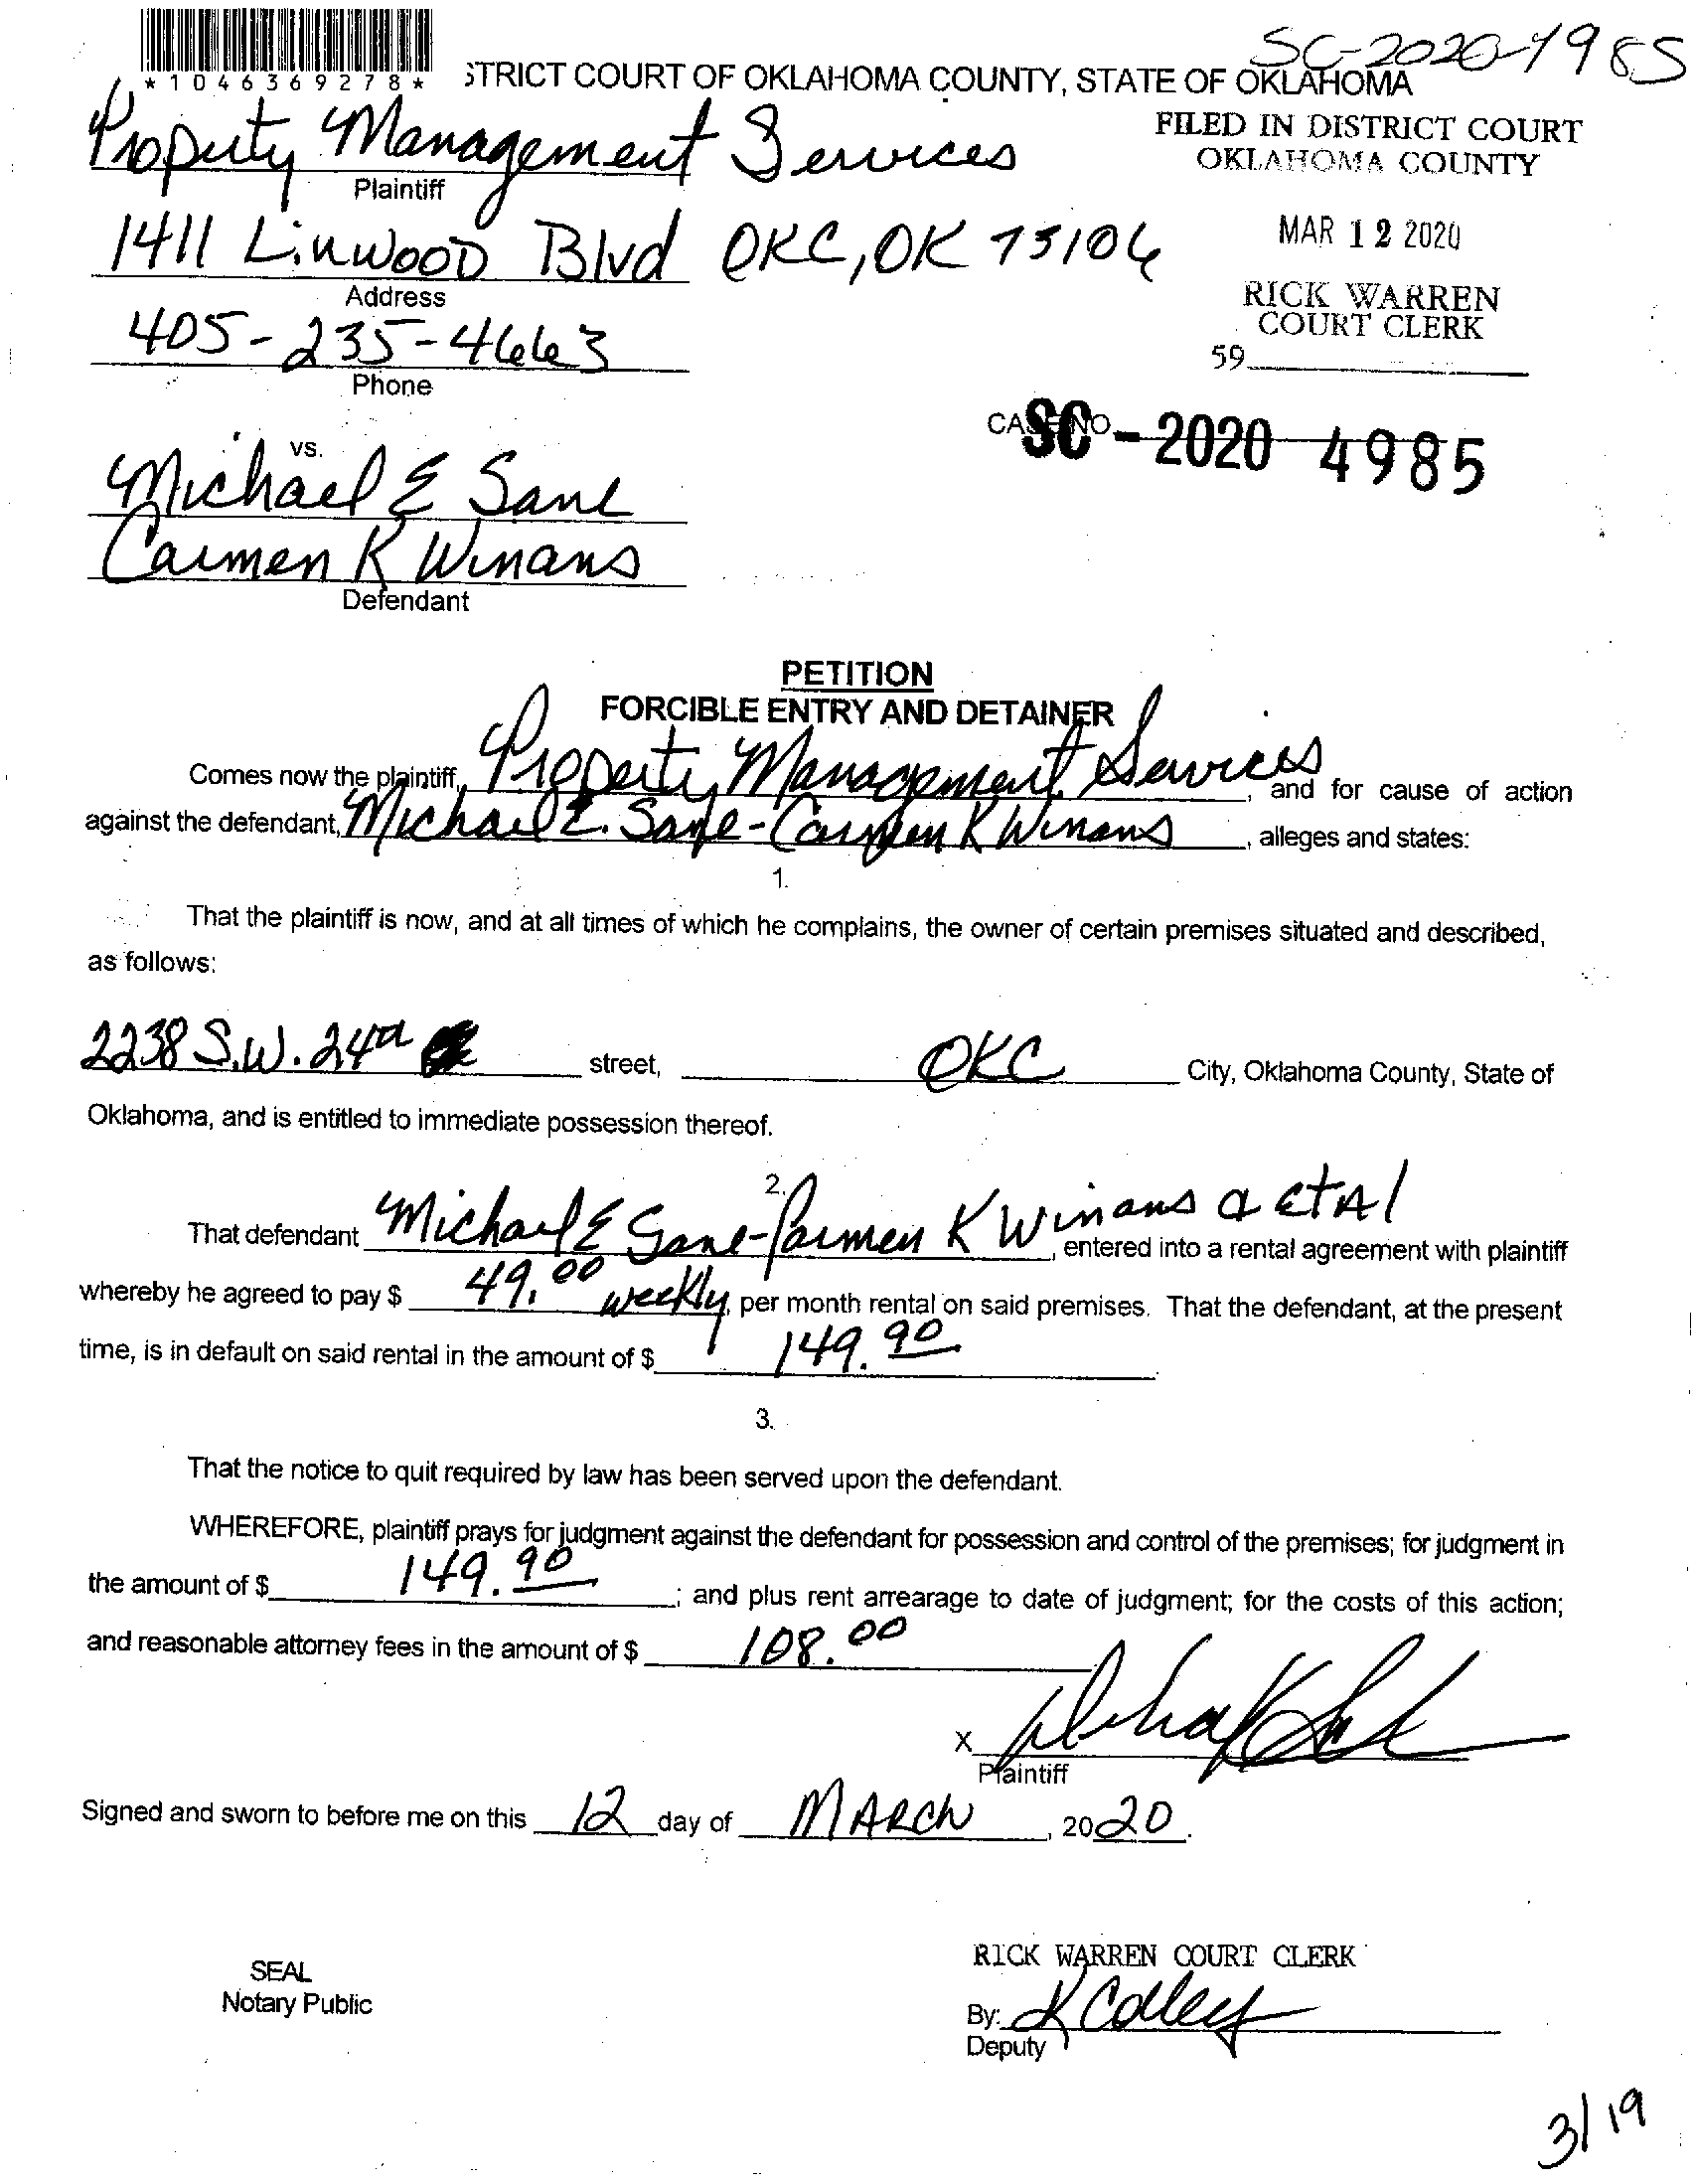 SC-2020-4985
*1046369278*
STRICT COURT OF OKLAHOMA COUNTY, STATE OF OKLAHOMA
Property Management Services
Plaintiff
FILED IN DISTRICT COURT
OKLAHOMA COUNTY
1411 LinwooD Blvd OKC, OK 73106
Address
MAR 12 2020
405-235-4663
Phone
RICK WARREN
COURT CLERK
59
vs.
CASE NO
SC - 2020 4985
Michael E Sane
Carmen K Winans
Defendant
PETITION
FORCIBLE ENTRY AND DETAINER
Comes now the plaintiff, Property Management Services, and for cause of action
against the defendant, Michael E. Sane-Carmen K Winans, alleges and states:
1.
That the plaintiff is now, and at all times of which he complains, the owner of certain premises situated and described,
as follows:
2238 S.W. 24th street, OKC City, Oklahoma County, State of
Oklahoma, and is entitled to immediate possession thereof.
2.
That defendant Michael E Sane-Carmen K Winans & EtAl, entered into a rental agreement with plaintiff
whereby he agreed to pay $ 49.00 weekly, per month rental on said premises. That the defendant, at the present
time, is in default on said rental in the amount of $ 149.90.
3.
That the notice to quit required by law has been served upon the defendant.
WHEREFORE, plaintiff prays for judgment against the defendant for possession and control of the premises; for judgment in
the amount of $ 149.90; and plus rent arrearage to date of judgment; for the costs of this action;
and reasonable attorney fees in the amount of $ 108.00
X
Plaintiff
Signed and sworn to before me on this 12 day of MARCh, 2020.
SEAL
Notary Public
RICK WARREN COURT CLERK
By: K Colley
Deputy
3/19